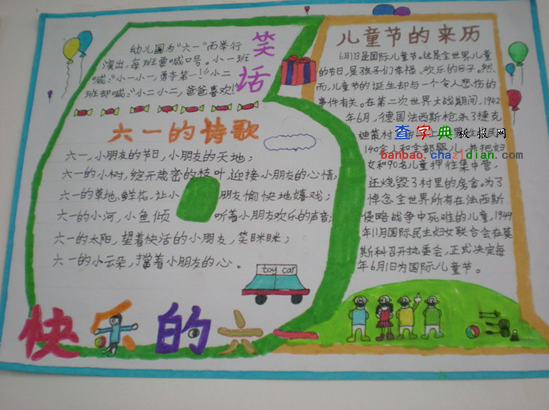 笑话
幼儿园为“六一”而举行
演出,每班要喊口号。小一班
喊:“小一小一,勇夺第一!”小二
班却喊:“小二小二,爸爸喜欢!”
六一的诗歌
六一,小朋友的节日,小朋友的天地;
六一的小树,绽开茂密的枝叶,迎接小朋友的心情;
六一的草地,鲜花,让小朋友愉快地嬉戏;
六一的小河,小鱼倾听着小朋友欢乐的声音;
六一的太阳,望着快活的小朋友,笑眯眯;
六一的小云朵,揣着小朋友的心。
toy car
快乐的六一
儿童节的来历
6月1日是国际儿童节。这是全世界儿童
的节日,是孩子们幸福、欢乐的日子。然
而,儿童节的诞生却与一个令人悲伤的
事件有关。在第二次世界大战期间,1942
年6月,德国法西斯枪杀了捷克
迪莱村
140余人和全部婴儿,并把妇
女和90名儿童押往集中营,
还烧毁了村里的房舍。为了
悼念全世界所有在法西斯
侵略战争中死难的儿童,1949
年11月国际民主妇女联合会在莫
斯科召开执委会,正式决定每
年6月1日为国际儿童节。
查字典 板报网
banbao.chazidian.com